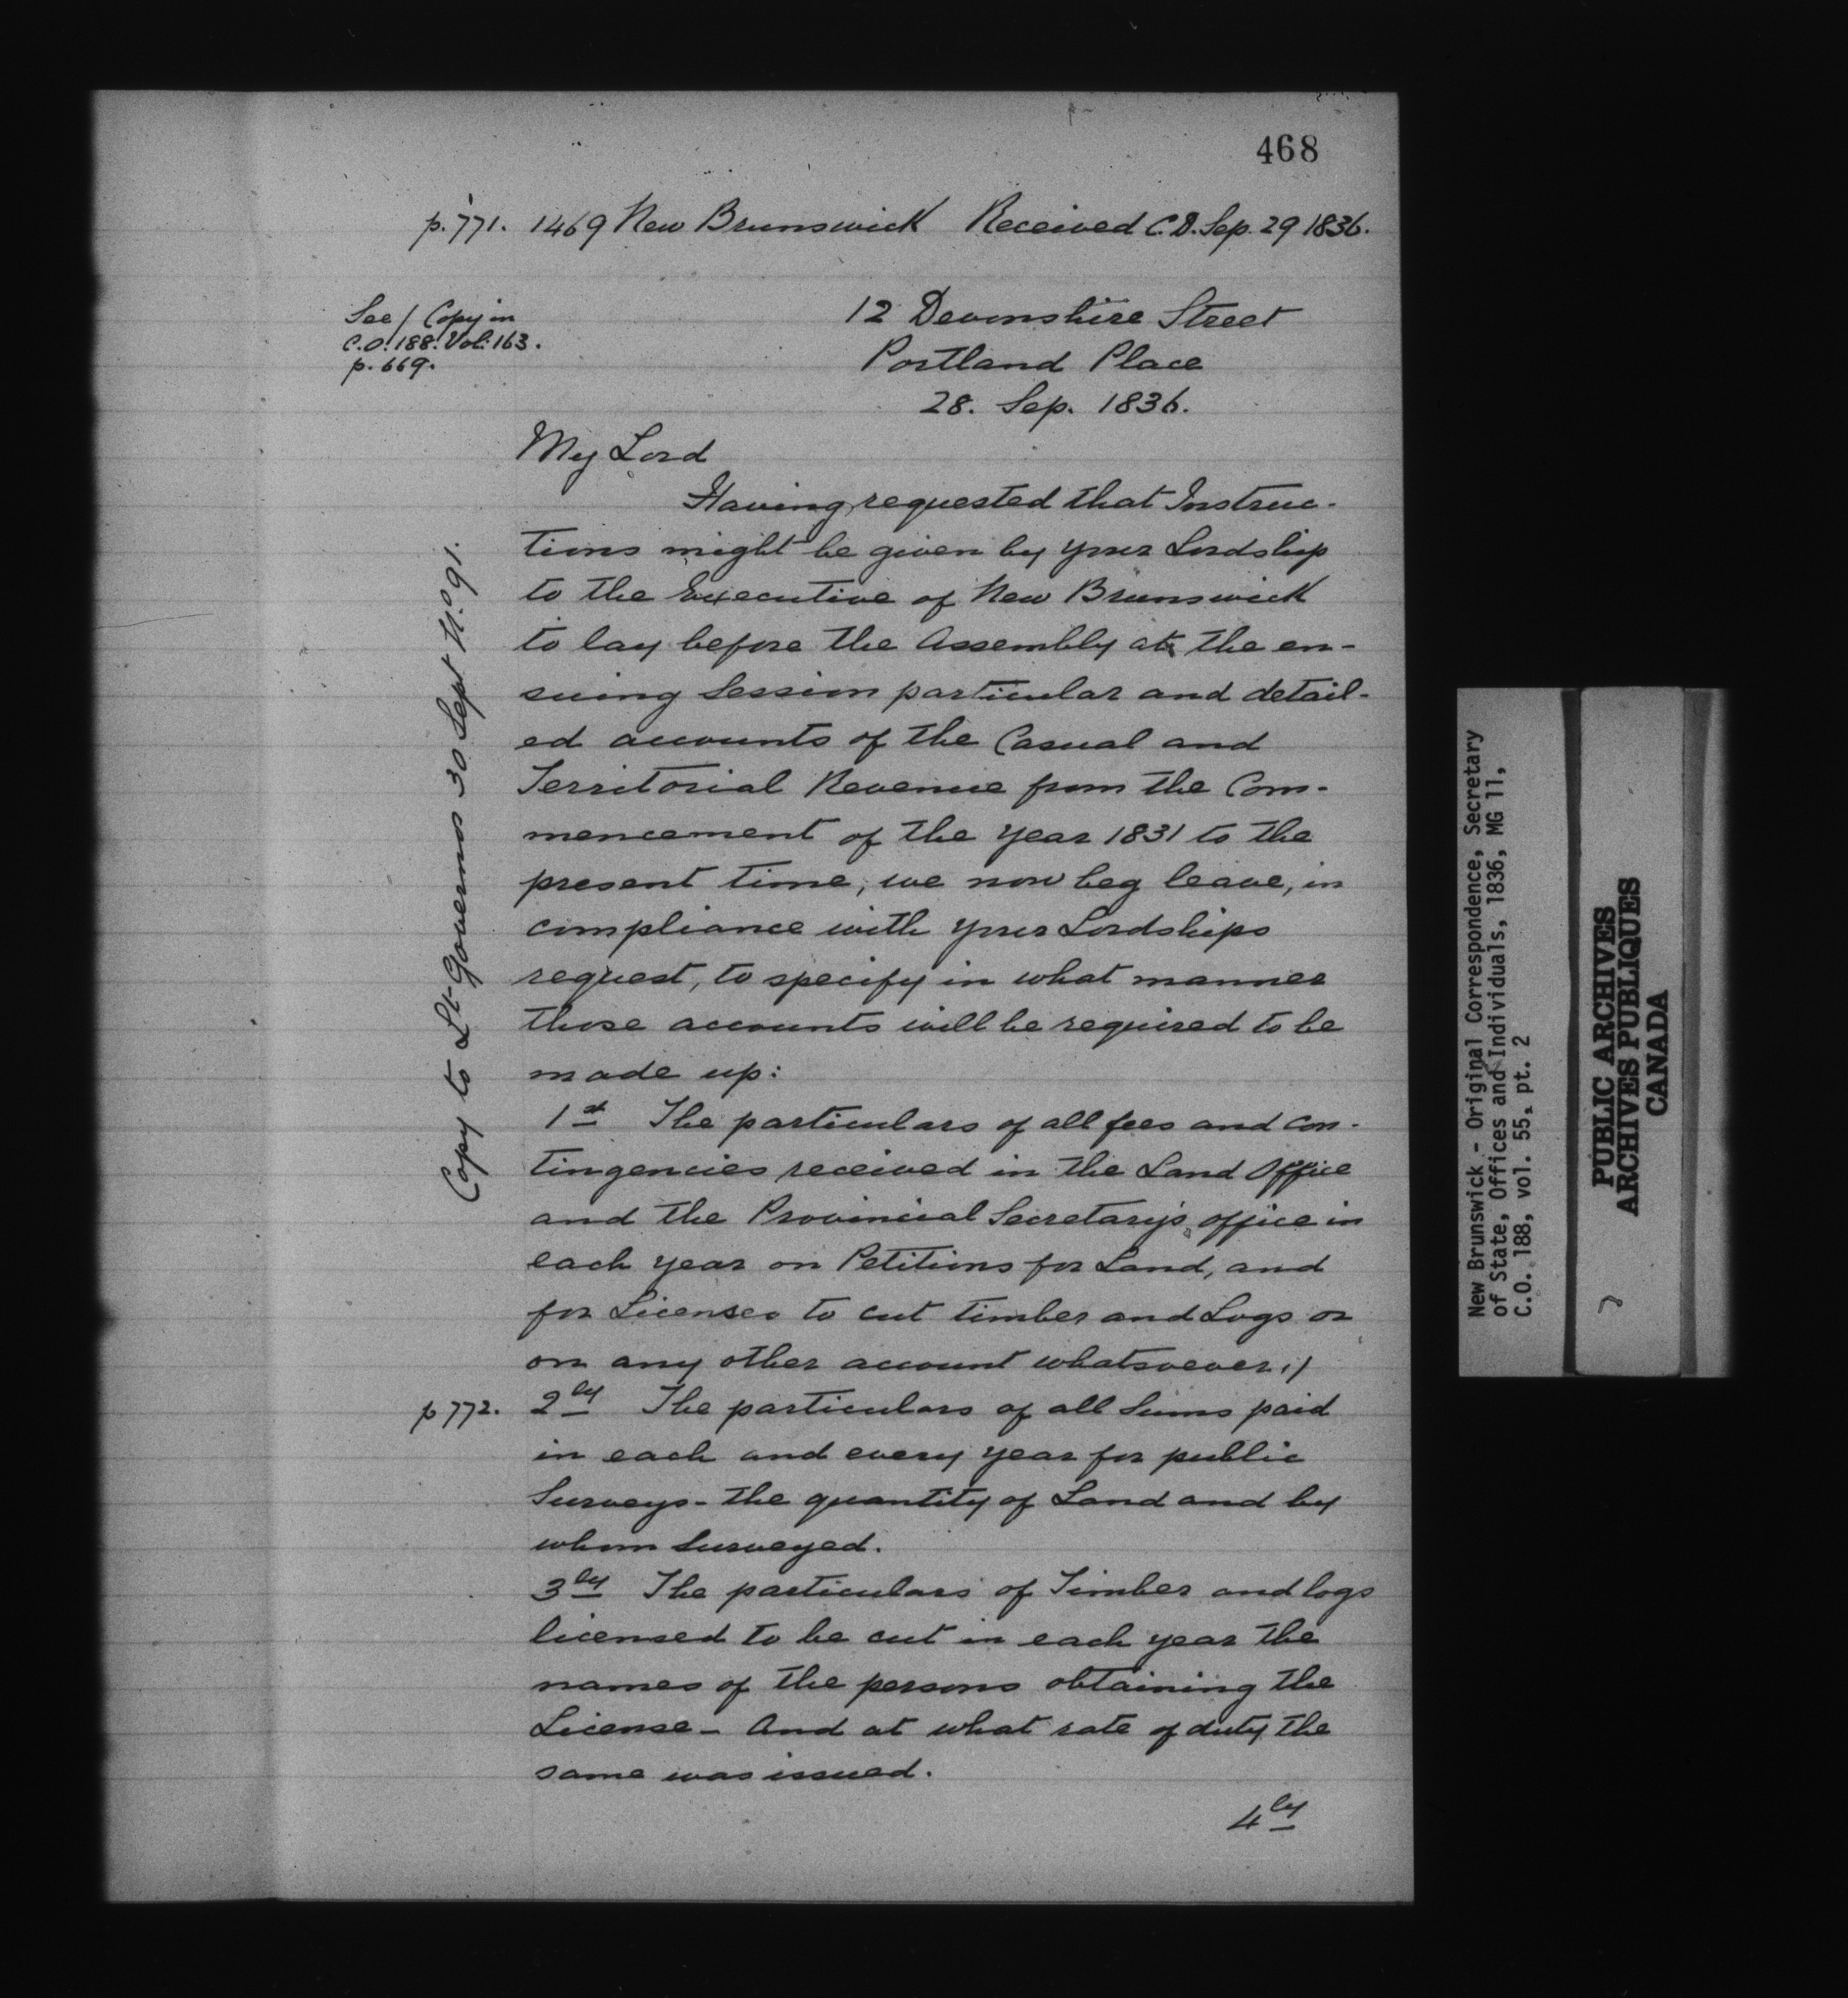 468
p. 771. 1469 New Brunswick Received C.D. Sep. 29 1836.
See / Copy in
C.O. 188. Vol. 163.
p. 669.
12 Devonshire Street
Portland Place
28. Sep. 1836.
My Lord
Having requested that Instruc-
tions might be given by your Lordship
to the Executive of New Brunswick
to lay before the Assembly at the en-
suing Session particular and detail-
ed accounts of the Casual and
Territorial Revenue from the Com-
mencement of the year 1831 to the
present time, we now beg leave, in
compliance with your Lordships
request, to specify in what manner
those accounts will be required to be
made up:
1st The particulars of all fees and con-
tingencies received in the Land Office
and the Provincial Secretary's office in
each year on Petitions for Land, and
for Licenses to cut timber and Logs or
on any other account whatsoever,/
p 772. 2ly The particulars of all Sums paid
in each and every year for public
Surveys - the quantity of Land and by
whom Surveyed.
3ly The particulars of Timber and logs
licensed to be cut in each year the
names of the persons obtaining the
License - And at what rate of duty the
same was issued.
4ly
Copy to Lt. Governor 30 Sept No. 91.
New Brunswick - Original Correspondence, Secretary
of State, Offices and Individuals, 1836, MG 11,
C.O. 188, vol. 55, pt. 2
PUBLIC ARCHIVES
ARCHIVES PUBLIQUES
CANADA